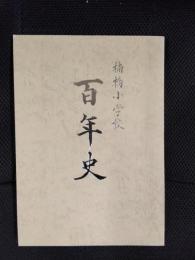 楠柏小学校
百年史